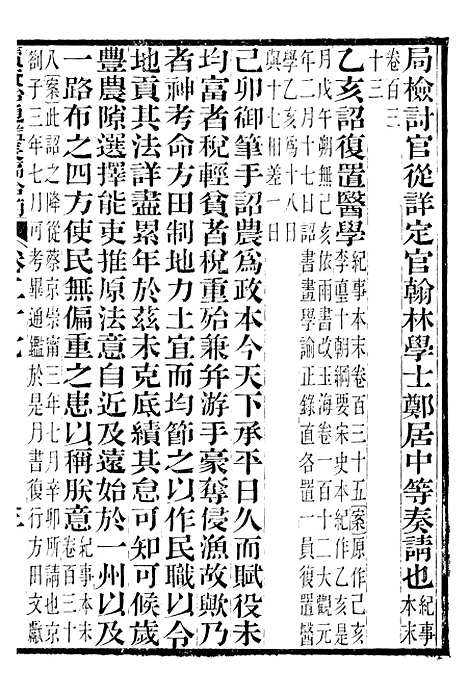 局檢討官從詳定官翰林學士鄭居中等奏請也紀事本末
卷百三
十三
乙亥詔復置醫學紀事本末卷百三十五案原作己亥
李𡌴十朝綱要宋史本紀作乙亥是
月戊午朔無己亥依兩書改玉海卷一百十二大觀元
年二月十七日詔書畫學諭正錄直各置一員復置醫
學乙亥爲十八日
與十七相差一日
己卯御筆手詔農爲政本今天下承平日久而賦役未
均富者稅輕貧者稅重殆兼并游手豪奪侵漁故歟乃
者神考命方田制地力土宜而均節之以作民職以令
地貢其法詳盡累年於茲未克底績其怠可候歲
豐農隙選擇能吏推原法意自近及遠始於一州以及
一路布之四方使民無偏重之患以稱朕意紀事本末
卷百三十
八案此詔之降從蔡京崇甯三年七月辛卯所請也京
劄子三年七月可考畢通鑑於是月書復行方田文獻
卷二十七